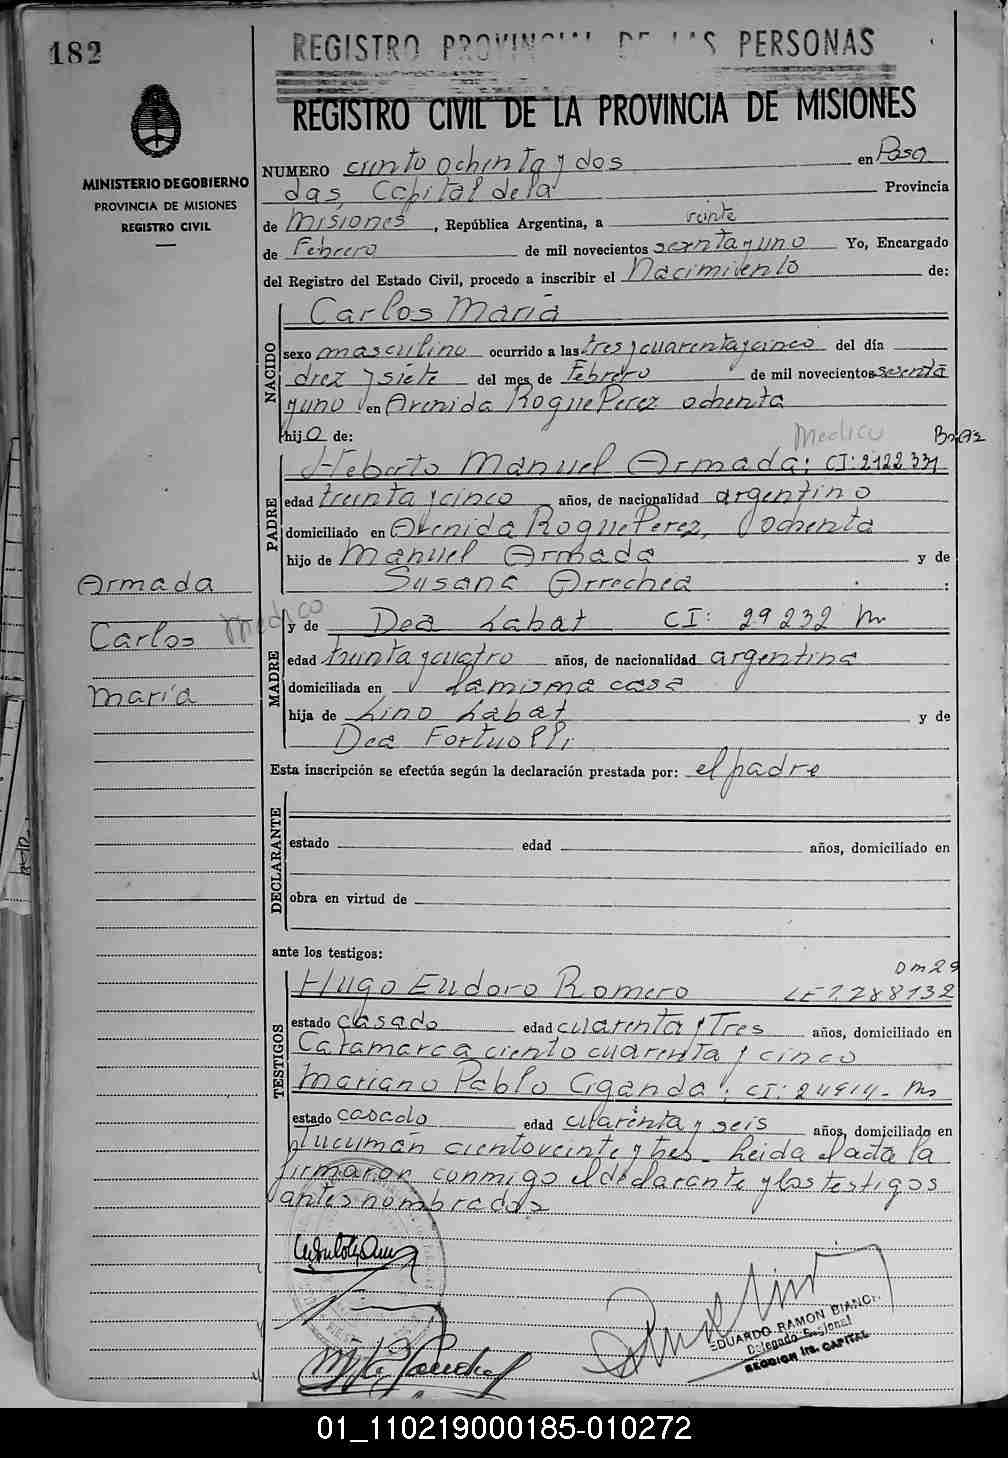 182
REGISTRO PROVINCIAL DE LAS PERSONAS
REGISTRO CIVIL DE LA PROVINCIA DE MISIONES
MINISTERIO DE GOBIERNO
PROVINCIA DE MISIONES
REGISTRO CIVIL
NUMERO ciento ochenta y dos en Posa
das, Capital de la Provincia
de Misiones, República Argentina, a veinte
de Febrero de mil novecientos sesenta y uno Yo, Encargado
del Registro del Estado Civil, procedo a inscribir el Nacimiento de:
NACIDO
Carlos María
sexo masculino ocurrido a las tres y cuarenta y cinco del día
diez y siete del mes de Febrero de mil novecientos sesenta
y uno en Avenida Roque Perez ochenta
hijo de: Medico
PADRE
Heberto Manuel Armada: CI: 2122331
edad treinta y cinco años, de nacionalidad argentino
domiciliado en Avenida Roque Perez, ochenta
hijo de Manuel Armada y de
Susana Arrechea :
Armada
Carlos Medico
María
MADRE
y de Dea Labat CI: 29232 M
edad treinta y cuatro años, de nacionalidad argentina
domiciliada en la misma casa
hija de Lino Labat y de
Dea Fortuolli
Esta inscripción se efectúa según la declaración prestada por: el padre
DECLARANTE
estado edad años, domiciliado en
obra en virtud de
ante los testigos:
TESTIGOS
DM29
Hugo Eudoro Romero LE 7.288132
estado casado edad cuarenta y Tres años, domiciliado en
Catamarca ciento cuarenta y cinco
Mariano Pablo Ciganda; CI:
estado casado edad cuarenta y seis años, domiciliado en
Tucumán ciento veinte y tres_ Leida el acta la
firmaron conmigo el declarante y los testigos
antes nombrados
EDUARDO RAMON BIANCHI
Delegado Regional
SECCION 1ra. CAPITAL
01_110219000185-010272